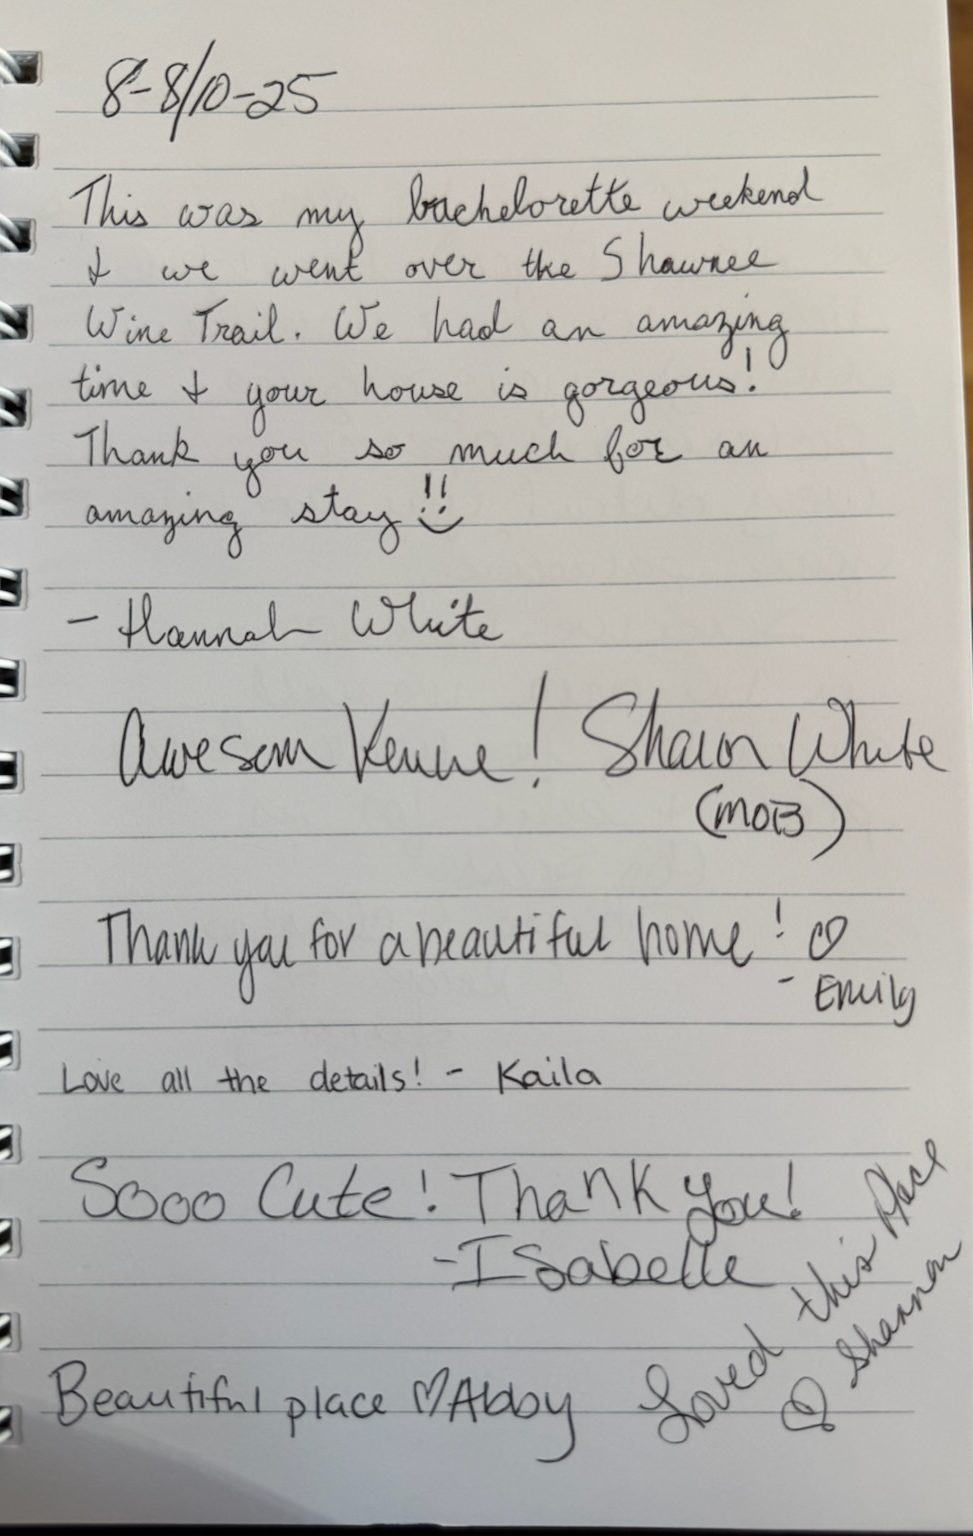 8-8/10-25
This was my bachelorette weekend
& we went over the Shawnee
Wine Trail. We had an amazing
time & your house is gorgeous!
Thank you so much for an
amazing stay!!
- Hannah White
Awesom Venue! Sharon White
(MOB)
Thank you for a beautiful home! ♡
- Emily
Love all the details! - Kaila
Sooo Cute! Thank you!
- Isabelle
Beautiful place ♡ Abby
Loved this place
♡ Shannon